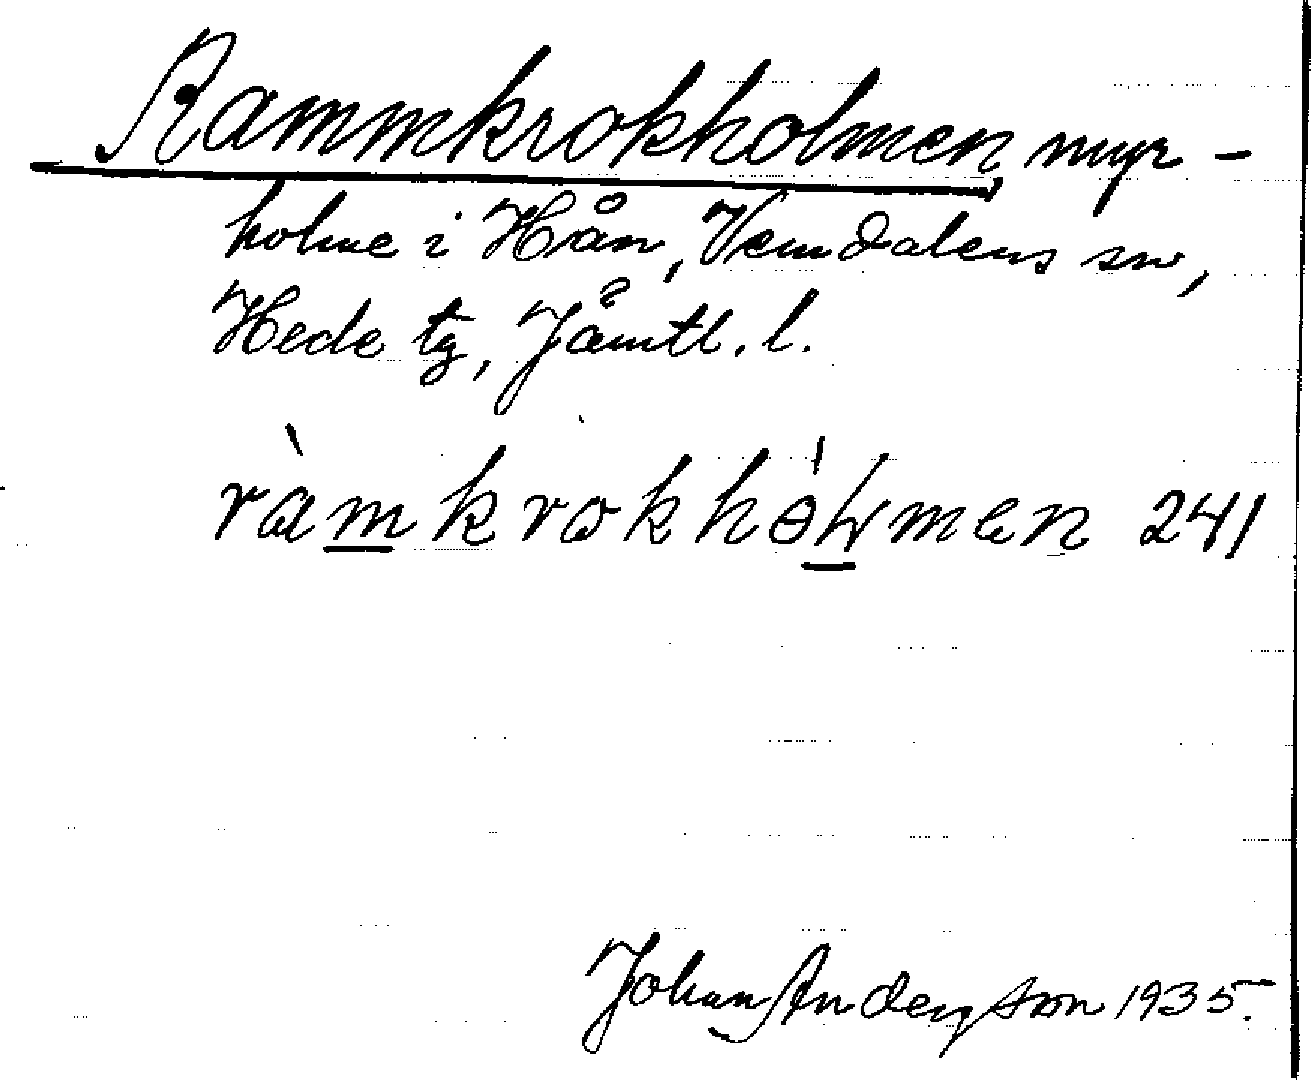 Rammkrokholmen, myr-
holme i Hån, Vemdalens sn,
Hede tg, Jämtl. l.
ràmkrokhòłmen 241
Johan Anderszon 1935.